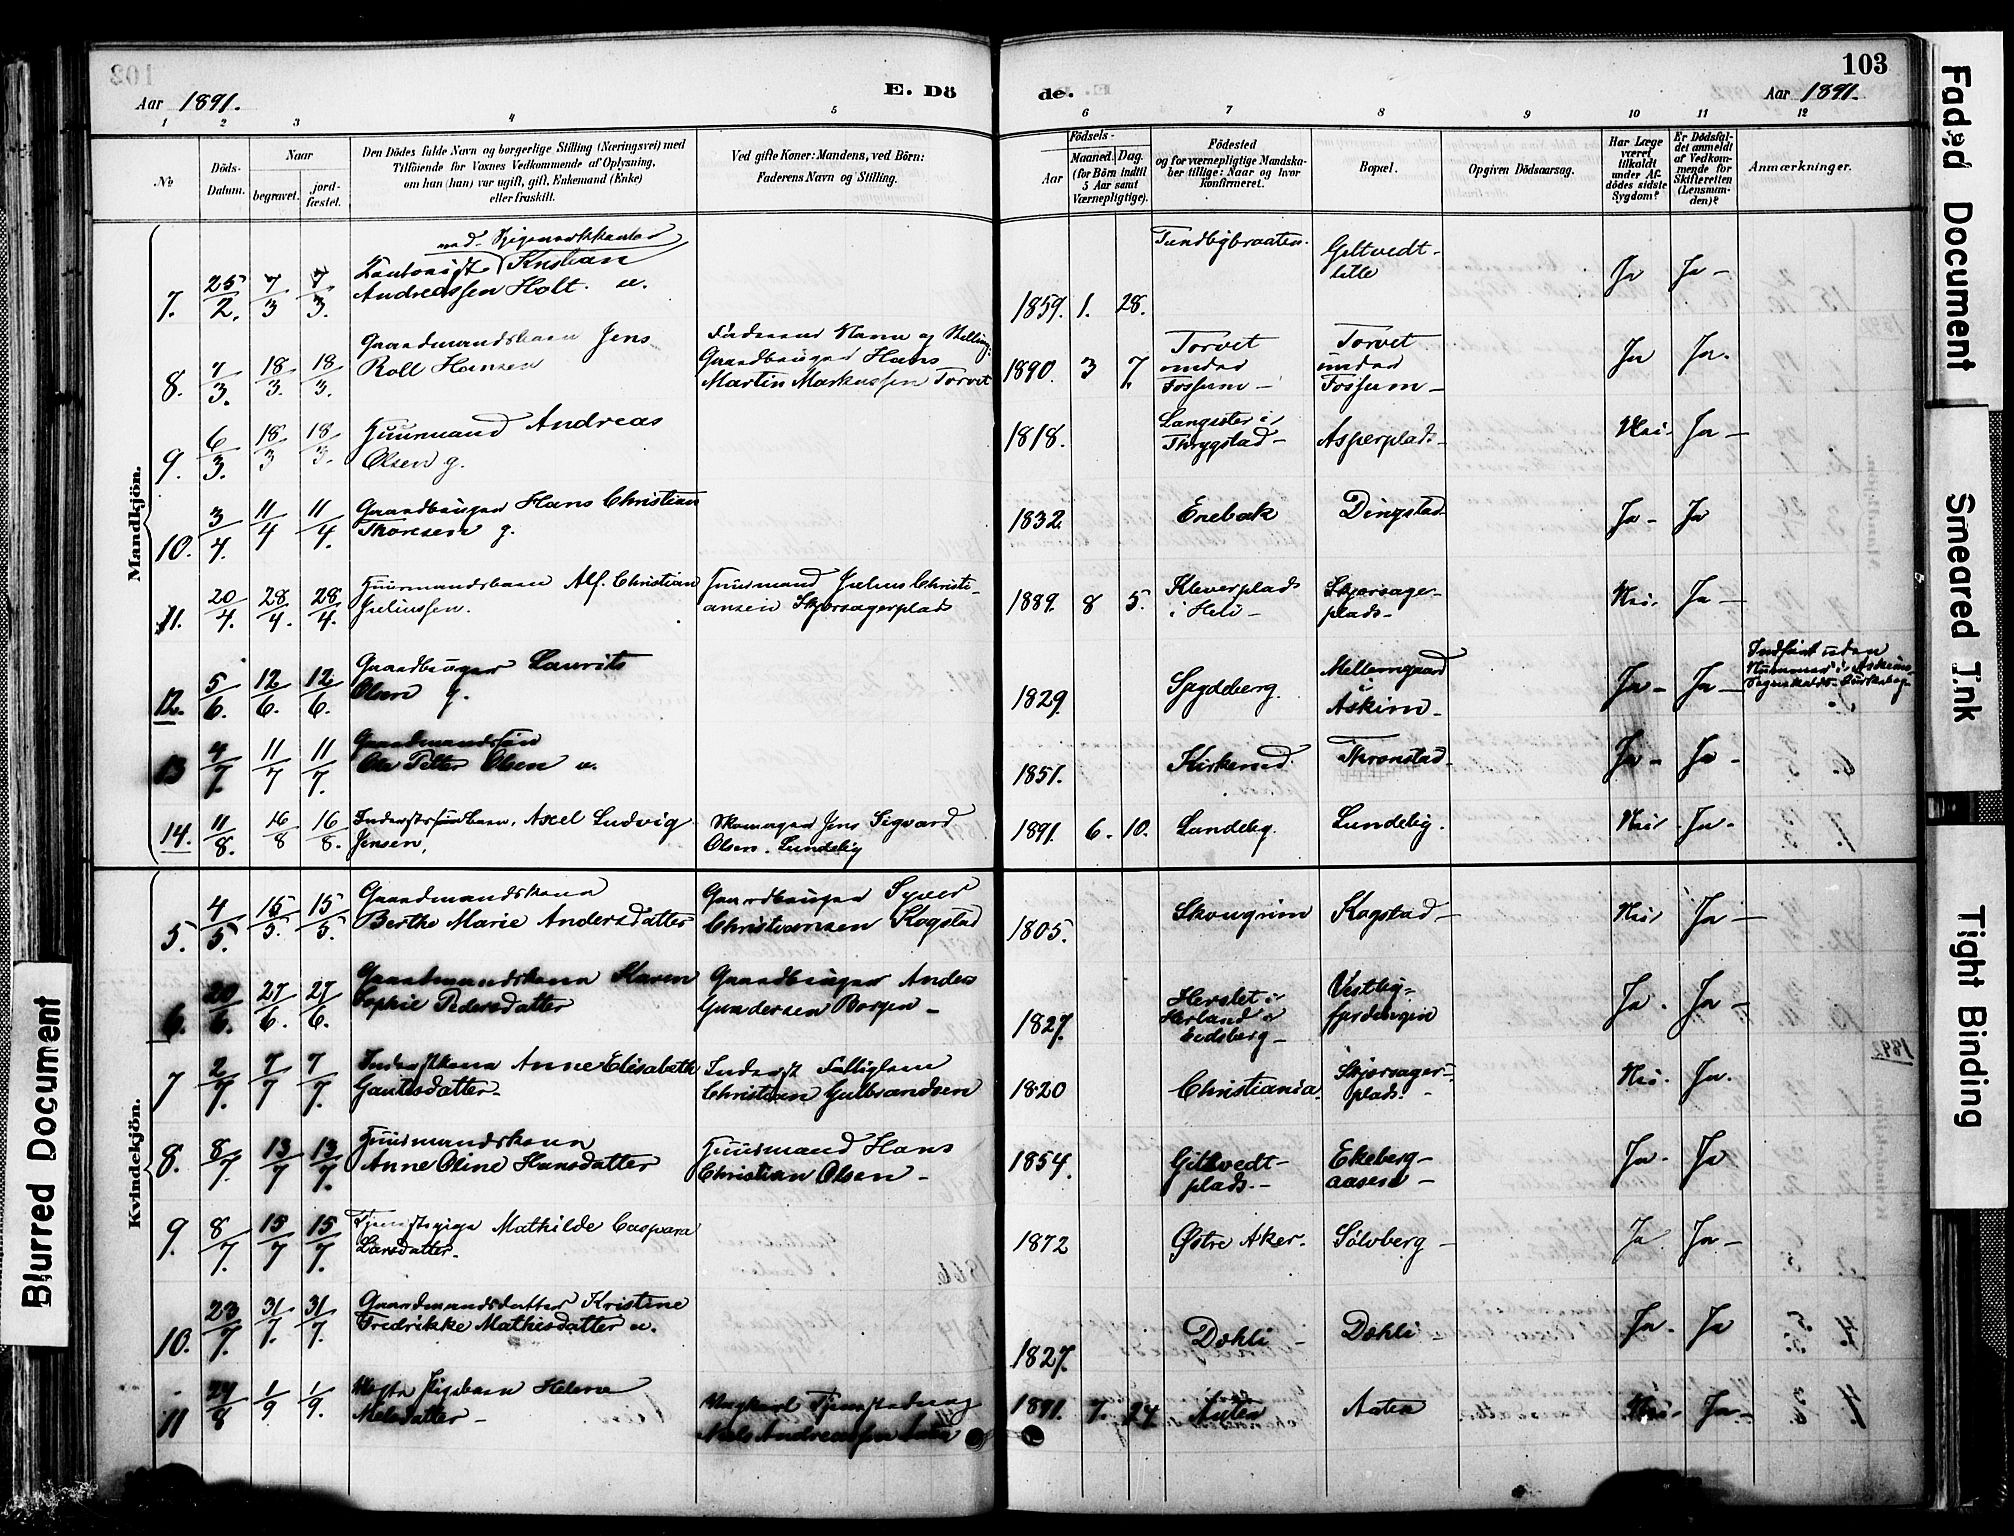 103
Aar 1891.
E. Dö
de.
Aar 1891.
1 2 3 4 5 6 7 8 9 10 11 12
No
Döds-
Datum.
Naar
begravet.
jord-
fæstet.
Den Dödes fulde Navn og borgerlige Stilling (Næringsvei) med
Tilföiende for Voxnes Vedkommende af Oplysning,
om han (hun) var ugift, gift, Enkemand (Enke)
eller fraskilt.
Ved gifte Koner: Mandens, ved Börn:
Faderens Navn og Stilling.
Födsels-
Aar
Maaned. Dag.
(for Börn indtil
5 Aar samt
Værnepligtige).
Födested
og for værnepligtige Mandska-
ber tillige: Naar og hvor
konfirmeret.
Bopæl.
Opgiven Dödsaarsag.
Har Læge
været
tilkaldt
under Af-
dödes sidste
Sygdom?
Er Dödsfal-
det anmeldt
af Vedkom-
mende for
Skifteretten
(Lensman-
den)?
Anmærkninger.
Mandkjön.
7. 25/2. 7/3 7/3. Kristian
Andreassen Holt. u.
1859. 1. 28. Tundbybraaten. Geltvedt-
lille Ja Ja -
8. 7/3. 18/3. 18/3. Gaardmandsbarn Jens
Roll Hansen
Faderens Navn og Stilling:
Gaardbruger Hans
Martin Markussen Torvet
1890. 3 7. Torvet
under
Fossum - Torvet
under
Fossum - Ja Ja.
9. 6/3. 18/3 18/3. Huusmand Andreas
Olsen g.
1818. Langsæter i
Thrygstad - Asperplads - Nei. Ja -
10. 3/4. 11/4 11/4. Gaardbruger Hans Christian
Thoresen g.
1832. Enebak Dingstad Ja - Ja
11. 20/4. 28/4. 28/4. Huusmandsbarn Alf. Christian
Juliussen.
Huusmand Julius Christi-
ansen Skjørsagerplads
1889. 8 5. Kleverplads
i Heli - Skjørsager-
plads - Nei. Ja -
12. 5/6. 12/6. 12/6. Gaardbruger Laurits
Olsen g.
1829. Sydeberg. Mellemgaard
i
Askim - Ja - Ja - Indført uden
Nummer i Askims
13 4/7. 11/7 11/7. Gaardmandssøn
Ole Petter Olsen u.
1851. Kirkerud Thronstad - Ja - Ja -
14. 11/8. 16/8 16/8. Axel Ludvig
Jensen.
Skomager Jens Sigvard
Olsen. Lundeby
1891. 6. 10. Lundeby. Lundeby. Nei Ja.
Kvindekjön.
5. 4/5. 15/5. 15/5. Gaardmandskona
Berthe Marie Andersdatter
Gaardbruger Syver
Christiansen Kogstad
1805. Skougrim Kogstad - Nei Ja -
6. 20/6. 27/6. 27/6. Gaardmandskona Karen
Sophie Pedersdatter
Gaardbruger Anders
Gundersen Borgen -
1827. Herslet i
Herland i
Eidsberg - Vestby-
fjerdingen Ja. Ja -
7 2/7. 7/7 7/7. Inderstkona Anne Elisabeth
Gautesdatter -
Inderst Fattiglem
Christian Gulbrandsen
1820 Christiania. Skjørsager-
plads. - Nei. Ja.
8. 8/7. 13/7 13/7. Huusmandskona
Anne Oline Hansdatter
Huusmand Hans
Christian Olsen -
1854. Giltvedt-
plads. - Ekeberg-
aasen - Ja. Ja
9. 8/7. 15/7 15/7. Tjenstepige Mathilde Caspara
Larsdatter -
1872 Østre Aker. Sølvberg - Ja. Ja -
10. 23/7. 31/7. 31/7. Gaardmandsdatter Kristine
Fredrikke Mathisdatter u.
1827. Dæhli - Dæhli - Ja. Ja
11 24/8 1/9 1/9. Helene
Nelsdatter -
Ungkarl
Niels Andreassen
1891. 7. 24. Aaten Aaten Nei. Ja -
Faded Document
Smeared Ink
Tight Binding
Blurred Document